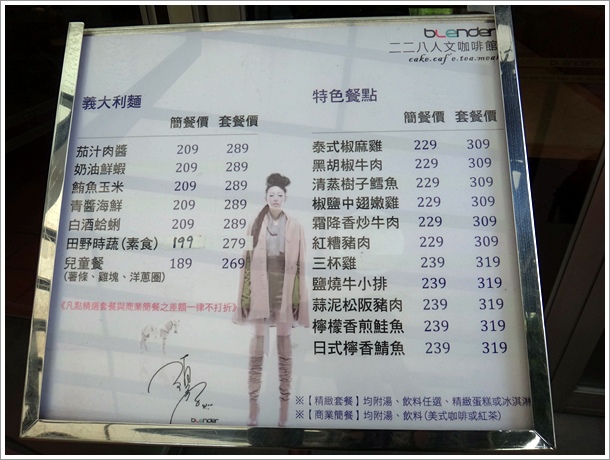 blender
二二八人文咖啡館
義大利麵
簡餐價 套餐價
茄汁肉醬 209 289
奶油鮮蝦 209 289
鮪魚玉米 209 289
青醬海鮮 209 289
白酒蛤蜊 209 289
田野時蔬(素食) 199 279
兒童餐 189 269
(薯條、雞塊、洋蔥圈)
《凡點精選套餐與商業簡餐之差額一律不打折》
特色餐點
簡餐價 套餐價
泰式椒麻雞 229 309
黑胡椒牛肉 229 309
清蒸樹子鱈魚 229 309
椒鹽中翅嫩雞 229 309
霜降香炒牛肉 229 309
紅糟豬肉 229 309
三杯雞 239 319
鹽燒牛小排 239 319
蒜泥松阪豬肉 239 319
檸檬香煎鮭魚 239 319
日式檸香鯖魚 239 319
※【精緻套餐】均附湯、飲料任選、精緻蛋糕或冰淇淋
※【商業簡餐】均附湯、飲料(美式咖啡或紅茶)
blender